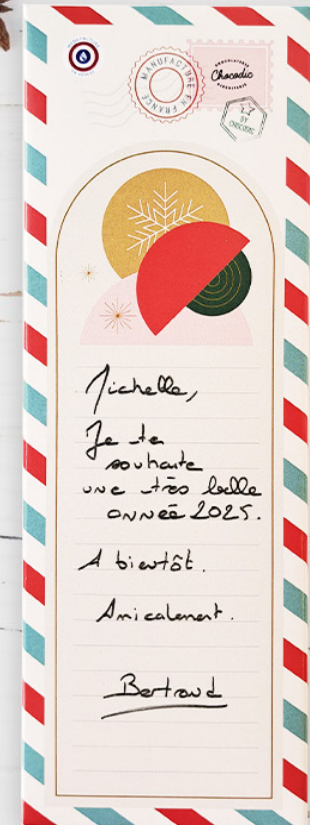 MANUFACTURE EN FRANCE
Chocodic
BY CHOCODIC
Michelle,
Je te
souhaite
une très belle
année 2025.
A bientôt.
Amicalement.
Bertrand